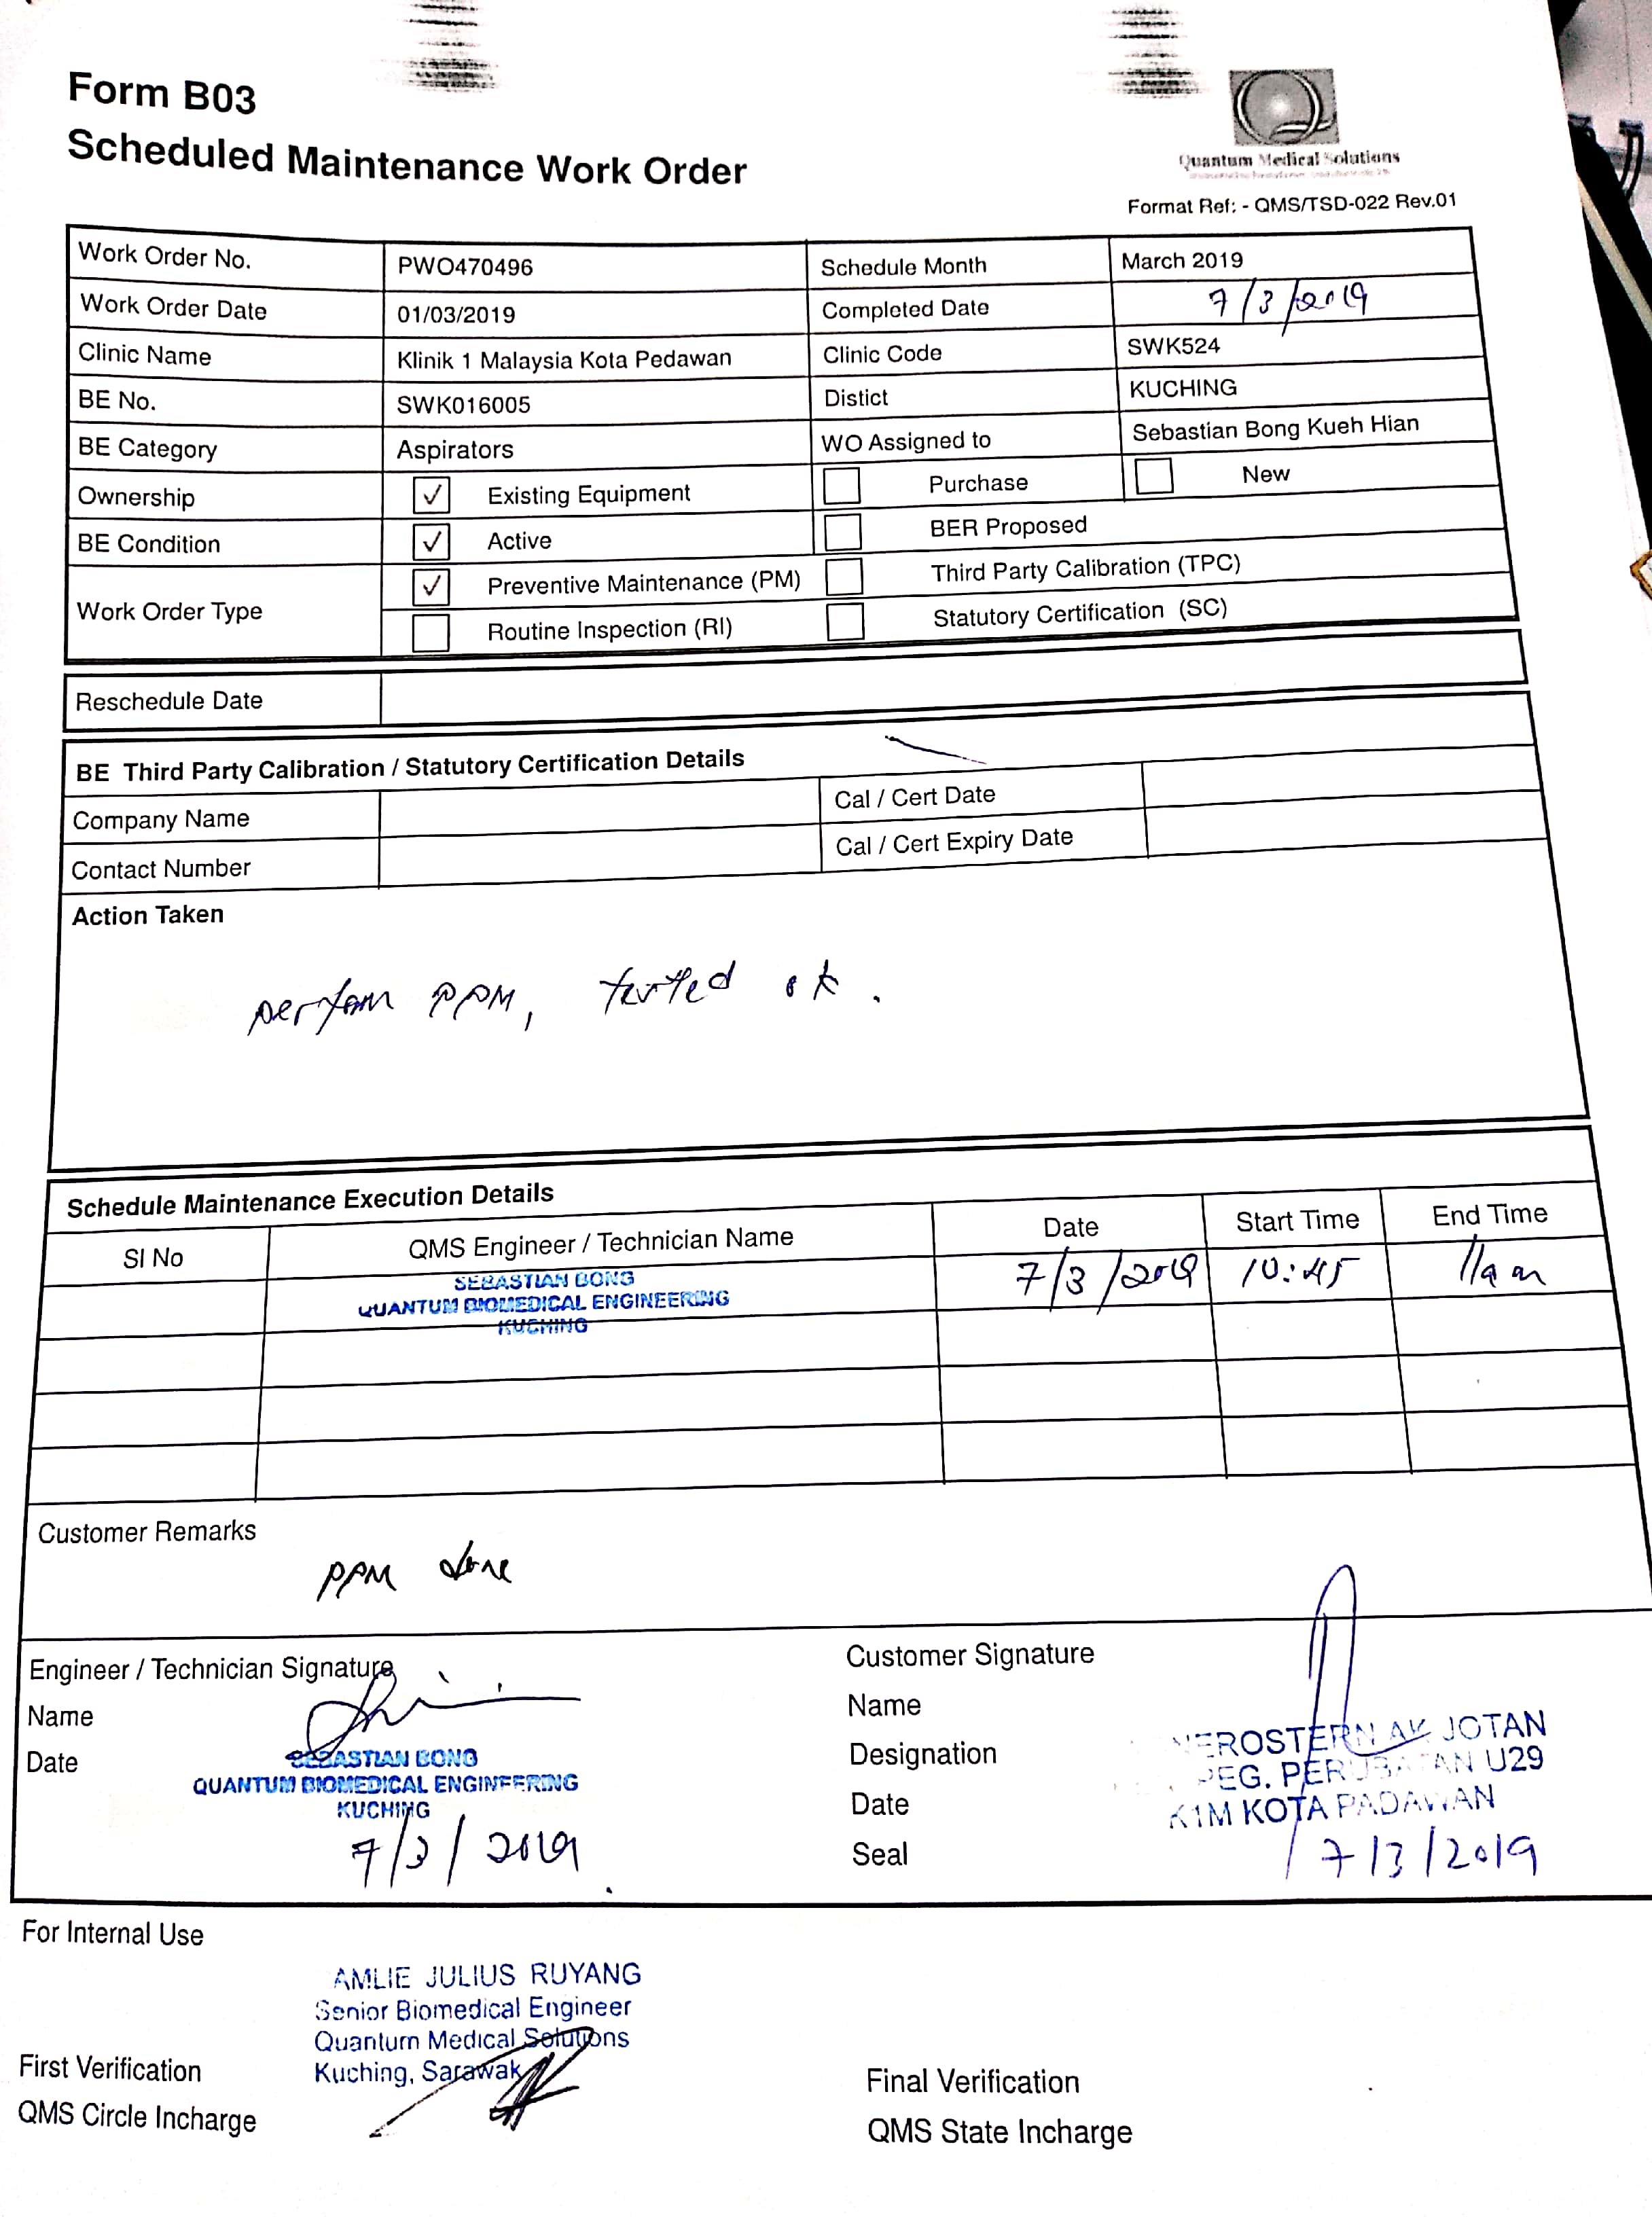 Form B03
Scheduled Maintenance Work Order
Quantum Medical Solutions
Format Ref: - QMS/TSD-022 Rev.01
Work Order No. PWO470496 Schedule Month March 2019
Work Order Date 01/03/2019 Completed Date 7/3/2019
Clinic Name Klinik 1 Malaysia Kota Pedawan Clinic Code SWK524
BE No. SWK016005 Distict KUCHING
BE Category Aspirators WO Assigned to Sebastian Bong Kueh Hian
Ownership ✓ Existing Equipment Purchase New
BE Condition ✓ Active BER Proposed
Work Order Type ✓ Preventive Maintenance (PM) Third Party Calibration (TPC)
Routine Inspection (RI) Statutory Certification (SC)
Reschedule Date
BE Third Party Calibration / Statutory Certification Details
Company Name Cal / Cert Date
Contact Number Cal / Cert Expiry Date
Action Taken
perform PPM, tested ok.
Schedule Maintenance Execution Details
SI No QMS Engineer / Technician Name Date Start Time End Time
SEBASTIAN BONG 7/3/2019 10:45 11am
QUANTUM BIOMEDICAL ENGINEERING
KUCHING
Customer Remarks
PPM done
Engineer / Technician Signature
Name
Date
SEBASTIAN BONG
QUANTUM BIOMEDICAL ENGINEERING
KUCHING
7/3/2019
Customer Signature
Name
Designation
Date
Seal
AK JOTAN
PEG. PERUBATAN U29
K1M KOTA PADAWAN
7/3/2019
For Internal Use
AMLIE JULIUS RUYANG
Senior Biomedical Engineer
Quantum Medical Solutions
Kuching, Sarawak
First Verification
QMS Circle Incharge
Final Verification
QMS State Incharge